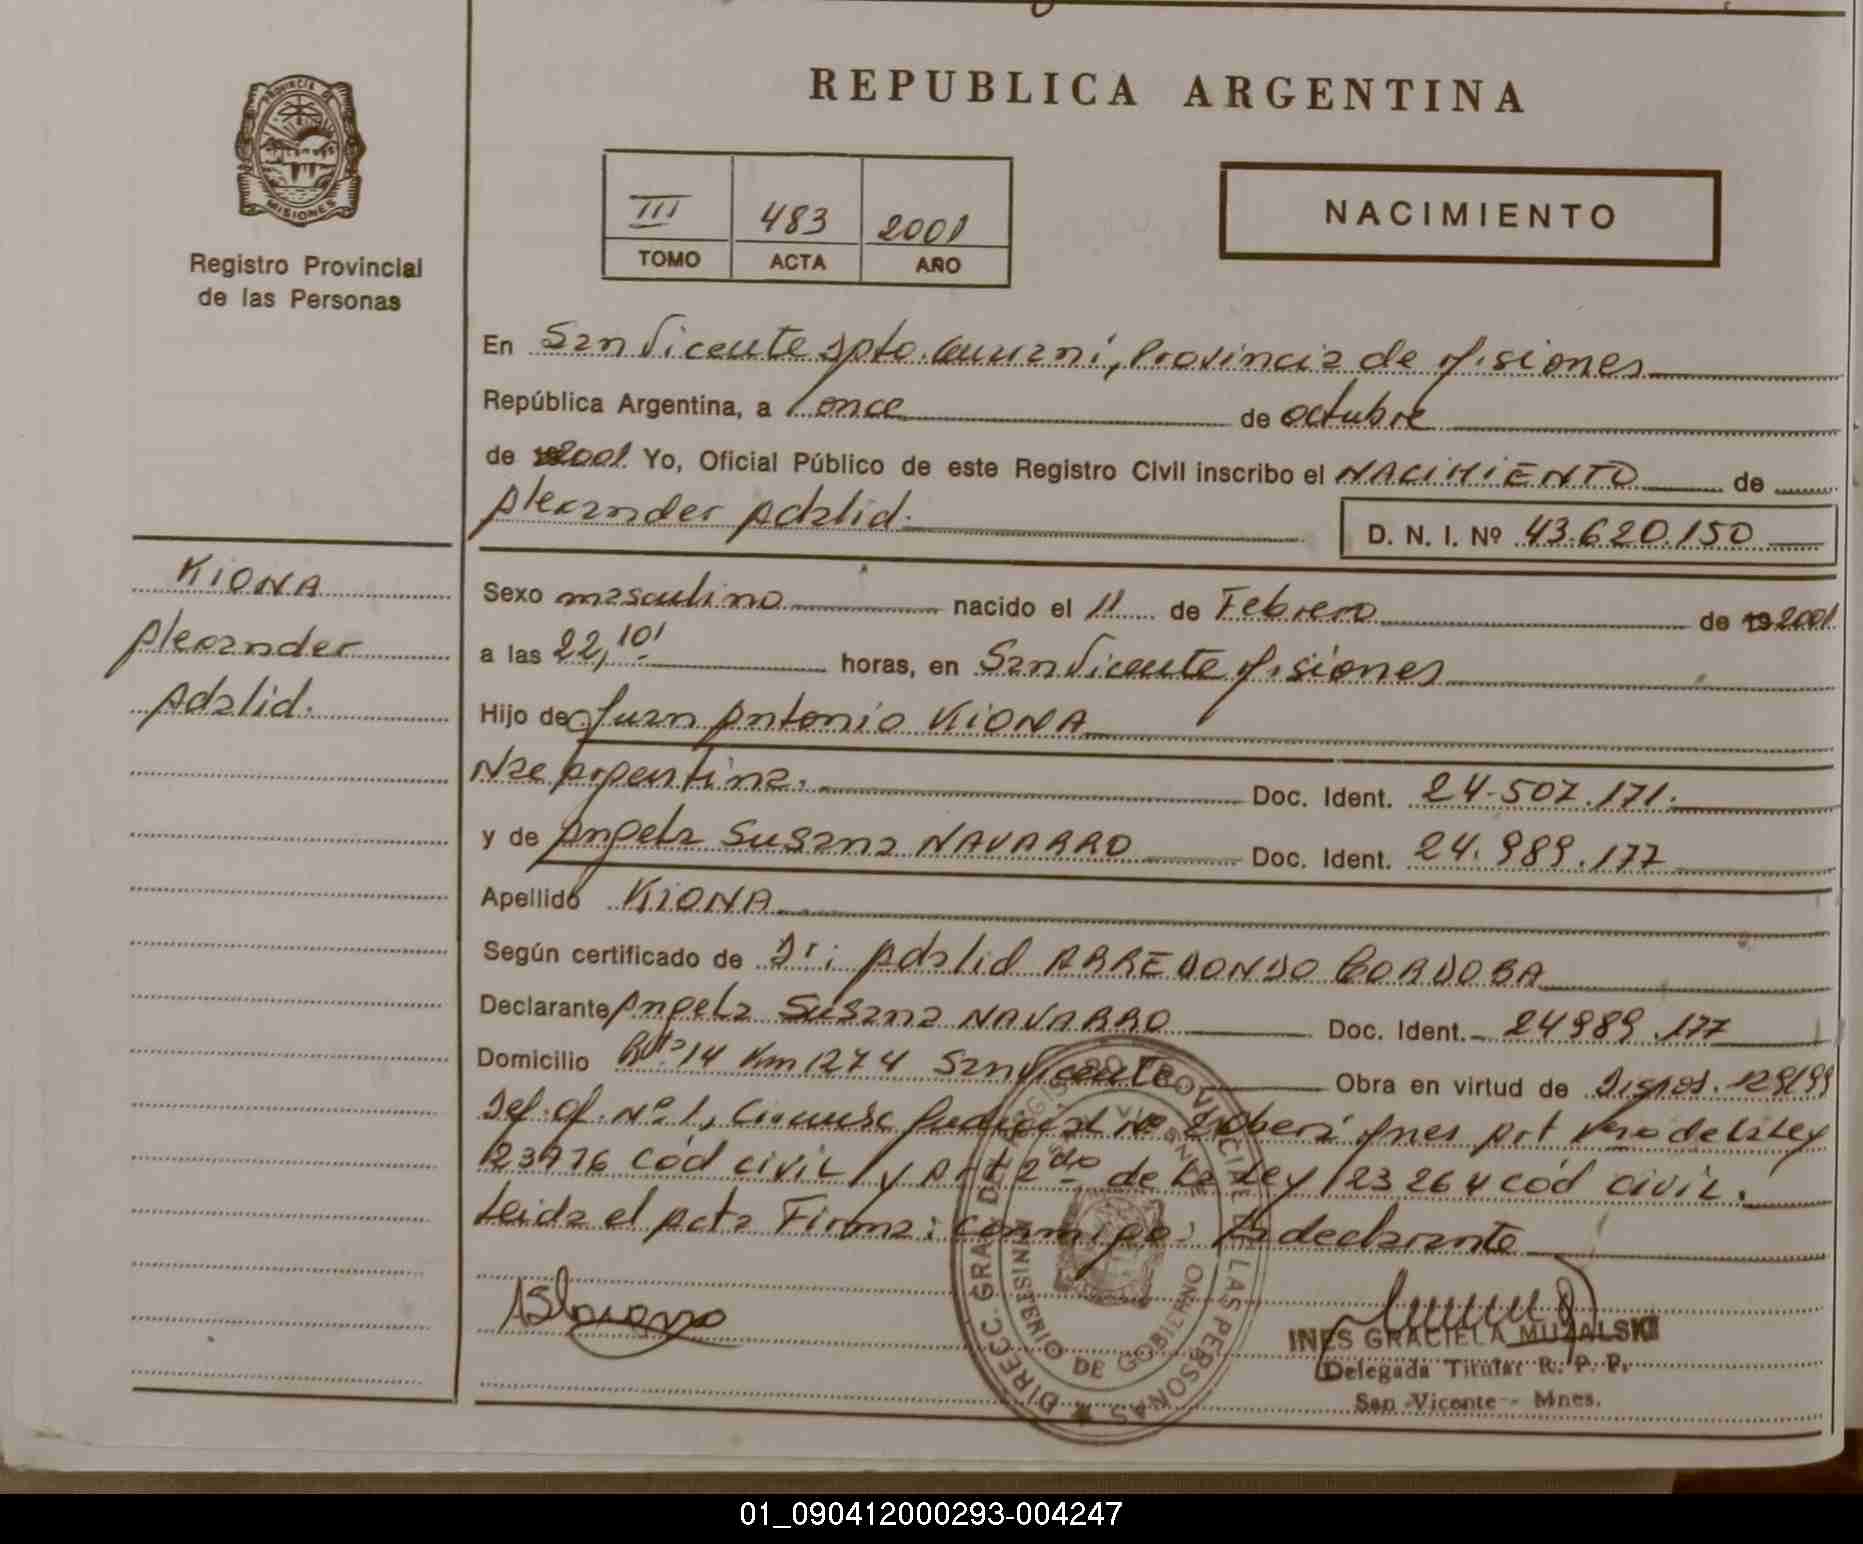 PROVINCIA DE
MISIONES
Registro Provincial
de las Personas
REPUBLICA ARGENTINA
III 483 2001
TOMO ACTA AÑO
NACIMIENTO
En San Vicente Dpto. Guarani, Provincia de Misiones
República Argentina, a once de octubre
de 2001 Yo, Oficial Público de este Registro Civil inscribo el NACIMIENTO de
Alexander Adalid.
D. N. I. Nº 43.620.150
KIONA
Alexander
Adalid.
Sexo masculino nacido el 11 de Febrero de 19 2001
a las 22,10' horas, en San Vicente Misiones
Hijo de Juan Antonio KIONA
Nac Argentina. Doc. Ident. 24.507.171.
y de Angela Susana NAVARRO Doc. Ident. 24.989.177
Apellido KIONA
Según certificado de Dr: Adalid ARREDONDO CORDOBA
Declarante Angela Susana NAVARRO Doc. Ident. 24989.177
Domicilio Ruta 14 Km 1274 San Vicente Obra en virtud de Dispos. 129/99
Def. Of. Nº 1, Circunsc Judicial Nº 2 Obera Mnes Art 1ero de la Ley
23776 Cód civil y Art 2do de la Ley 23264 Cód civil.
Leida el Acta Firma: conmigo: La declarante
DIRECC. GRAL. DEL REGISTRO PROVINCIAL DE LAS PERSONAS
MINISTERIO DE GOBIERNO
SAN VICENTE
INES GRACIELA MUZALSKI
Delegada Titular R. P. P.
San Vicente - Mnes.
01_090412000293-004247